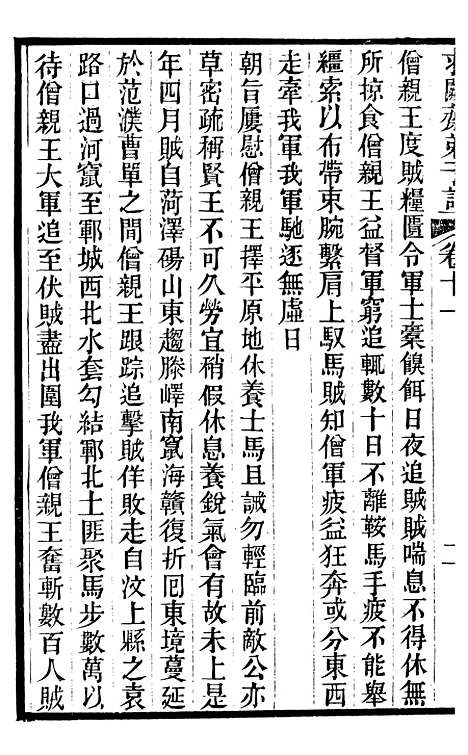 求闕齋弟子記 卷十一
僧親王度賊糧匱令軍士橐餱餌日夜追賊賊喘息不得休無
所掠食僧親王益督軍窮追輒數十日不離鞍馬手疲不能舉
繮索以布帶束腕繫肩上馭馬賊知僧軍疲益狂奔或分東西
走牽我軍我軍馳逐無虛日
朝旨屢慰僧親王擇平原地休養士馬且誡勿輕臨前敵公亦
草密疏稱賢王不可久勞宜稍假休息養銳氣會有故未上是
年四月賊自菏澤碭山東趨滕嶧南竄海贛復折囘東境蔓延
於范濮曹單之閒僧親王跟踪追擊賊佯敗走自汶上縣之袁
路口過河竄至鄆城西北水套勾結鄆北土匪聚馬步數萬以
待僧親王大軍追至伏賊盡出圍我軍僧親王奮斬數百人賊